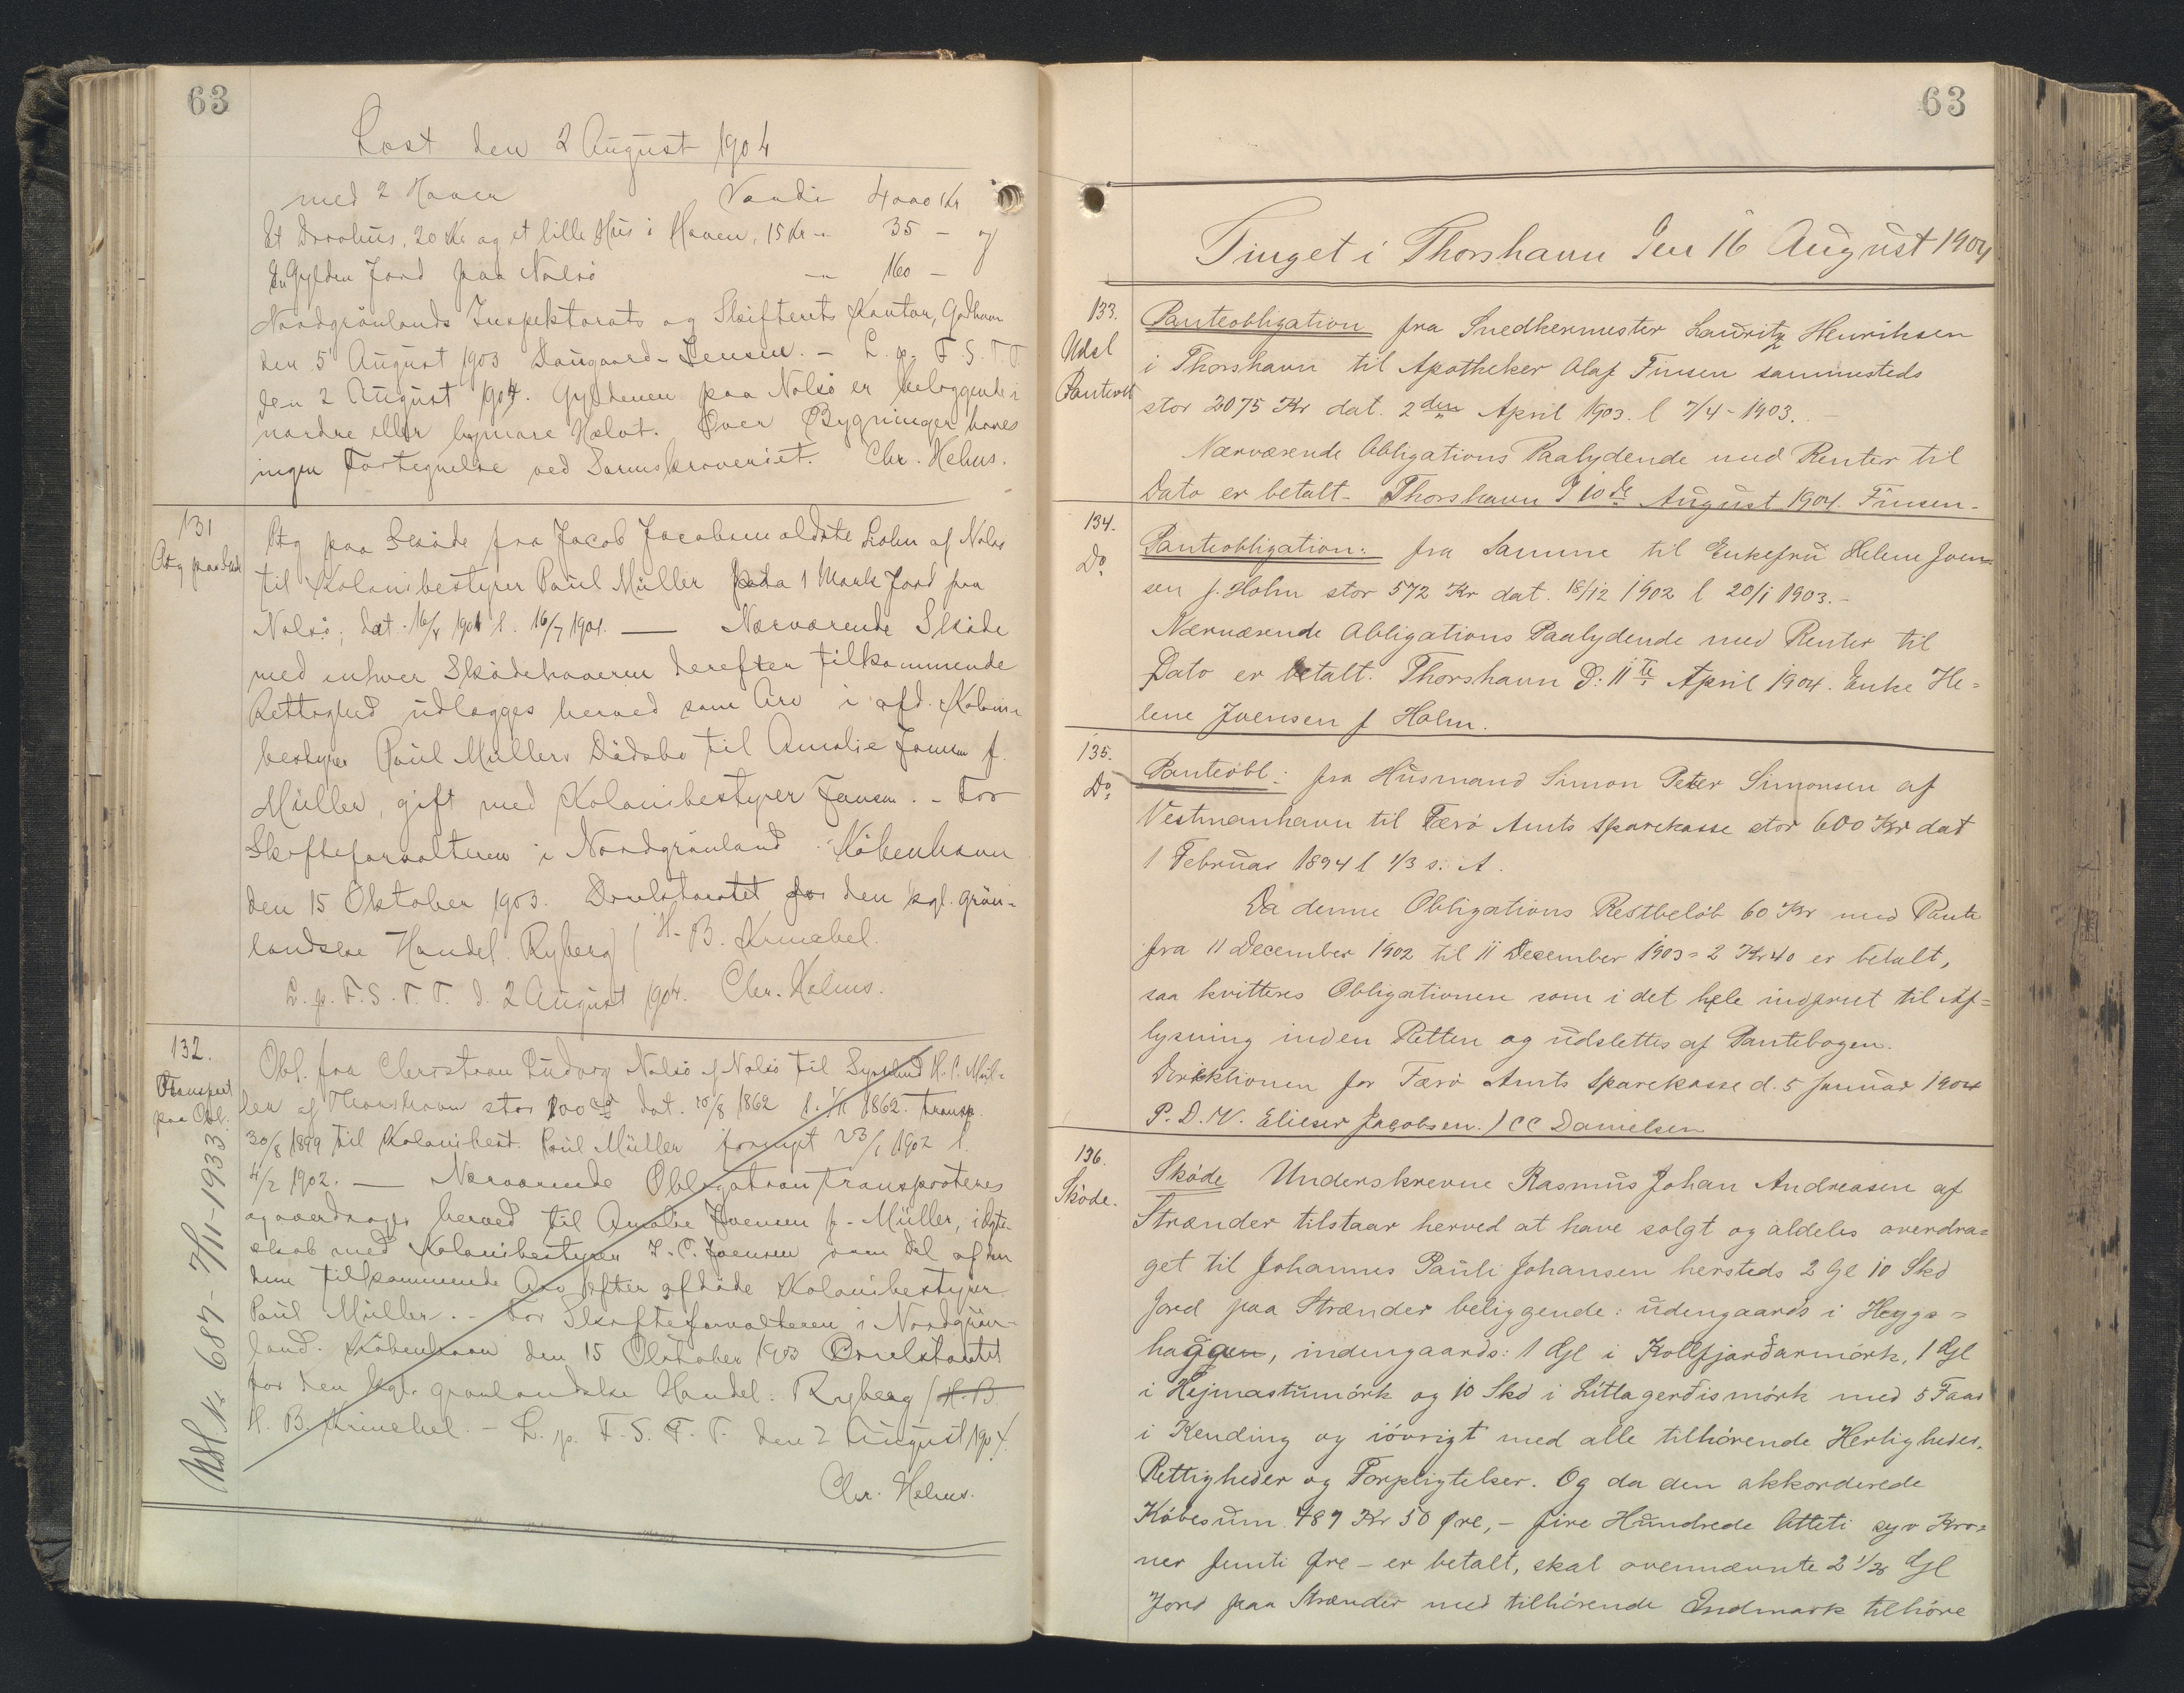 63
Læst den 2 August 1904
med 2 Haver Værdi 4000 Kr
Et Drvhus, 20 Kr og et lille Hus i Haven, 15 Kr -„- 35 - og
En Gylden Jord paa Nolsö -„- 160 -
Nordgrönlands Inspektorats og Skifterets Kontor, Godhavn
den 5 August 1903 Daugaard-Jensen. - L. p. F. S. T. T.
den 2 August 1904. Gyldenen paa Nolsö er beloggende i
nordre eller bymare Halvt. Over Bygninger haves
ingen Fortegnelse ved Sorenskriveriet. Chr. Helms.
131
Ptg paa Sköde
Ptg paa Sköde fra Jacob Jacobsen ældste Sohn af Nolsö
til Kolonibestyrer Paul Müller paa 1 Mark Jord paa
Nolsö; dat. 16/7 1901 l. 16/7 1901. — Nærværende Sköde
med enhver Sködehaveren derefter tilkommende
Rettighed udlægges herved som Arv i afd. Koloni-
bestyrer Paul Müllers Dödsbo til Amalie Joensen f.
Müller, gift med Kolonibestyrer Joensen. - For
Skifteforvalteren i Nordgrönland. Köbenhavn
den 15 Oktober 1903. Direktoratet for den kgl. grön-
landske Handel. Ryberg / H. B. Krenchel.
L. p. F. S. T. T. d. 2 August 1904. Chr. Helms.
132.
Transport
paa Obl.
Obl. fra Christian Ludvig Nolsö af Nolsö til Sysselmd H. C. Mül-
ler af Thorshavn stor 100 rd dat. 10/8 1862 l. 1/11 1862. transp.
30/8 1899 til Kolonibest. Poul Müller 23/1 1902 l.
4/2 1902. — Nærværende Obligation transporteres
og overdrages herved til Amalie Joensen f. Müller, i Ægte-
skab med Kolonibestyrer J. C. Joensen som Del af den
dem tilkommende Arv efter afdöde Kolonibestyrer
Poul Müller. - For Skifteforvalteren i Nordgrön-
land. Köbenhavn den 15 Oktober 1903 Direktoratet
for den kgl. grönlandske Handel: Ryberg / H. B.
H. B. Krenchel. - L. p. F. S. T. T. den 2 August 1904.
Chr. Helms.
Udsl. No 687 - 7/11-1933
63
Tinget i Thorshavn Den 16 August 1904
133.
Udsl
Panteobl
Panteobligation fra Snedkermester Lauritz Henriksen
i Thorshavn til Apotheker Olaf Finsen sammesteds
stor 2075 Kr dat. 2den April 1903. l 7/4 - 1903. -
Nærværende Obligations Paalydende med Renter til
Dato er betalt - Thorshavn D 10de August 1904. Finsen -
134.
Do
Panteobligation: fra Samme til Enkefru Helene Joen-
sen f. Holm stor 572 Kr dat. 18/12 1902 l 20/1 1903. -
Nærværende Obligations Paalydende med Renter til
Dato er betalt. Thorshavn D: 11te April 1904. Enke He-
lene Joensen f Holm.
135.
Do.
Panteobl: fra Husmand Simon Peter Simonsen af
Vestmanhavn til Færö Amts Sparekasse stor 600 Kr dat
1 Februar 1894 l 1/3 s. A.
Da denne Obligations Restbelöb 60 Kr med Rente
fra 11 December 1902 til 11 December 1903 = 2 Kr 40 er betalt,
saa kvitteres Obligationen som i det hele indfriet til Af-
lysning inden Retten og udslettes af Pantebogen.
Direktionen for Færö Amts Sparekasse d. 5 Januar 1904
P. D. V. Elieser Jacobsen. / CC Danielsen
136.
Sköde.
Sköde Underskrevne Rasmus Johan Andreasen af
Strænder tilstaar herved at have solgt og aldeles overdra-
get til Johannes Pauli Johansen hersteds 2 Gl 10 Skd
Jord paa Strænder beliggende: udengaards i Heyga-
haggen, indengaards: 1 Gl i Kollfjarðarmörk, 1 Gl
i Hejmastumörk og 10 Skd i Litlagerðismörk med 5 Faar
i Kending og iövrigt med alle tilhörende Herligheder,
Rettigheder og Forpligtelser. Og da den akkorderede
Köbesum 487 Kr 50 Øre, - fire Hundrede Otteti syv Kro-
ner femti Øre - er betalt, skal ovennævnte 2 1/2 Gl
Jord paa Strænder med tilhörende Indmark tilhöre